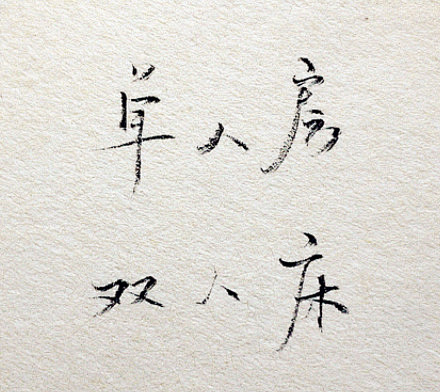 单人房
双人床